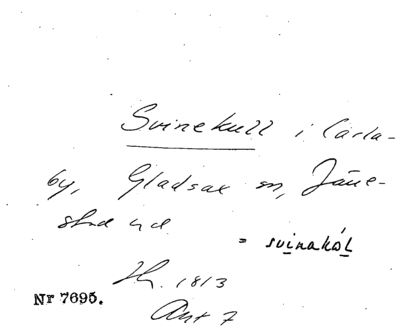 Svinekull i Carla-
by, Gladsax sn, Jäne-
stad hd
= svinakół
Ih. 1813
Akt 7
Nr 7695.